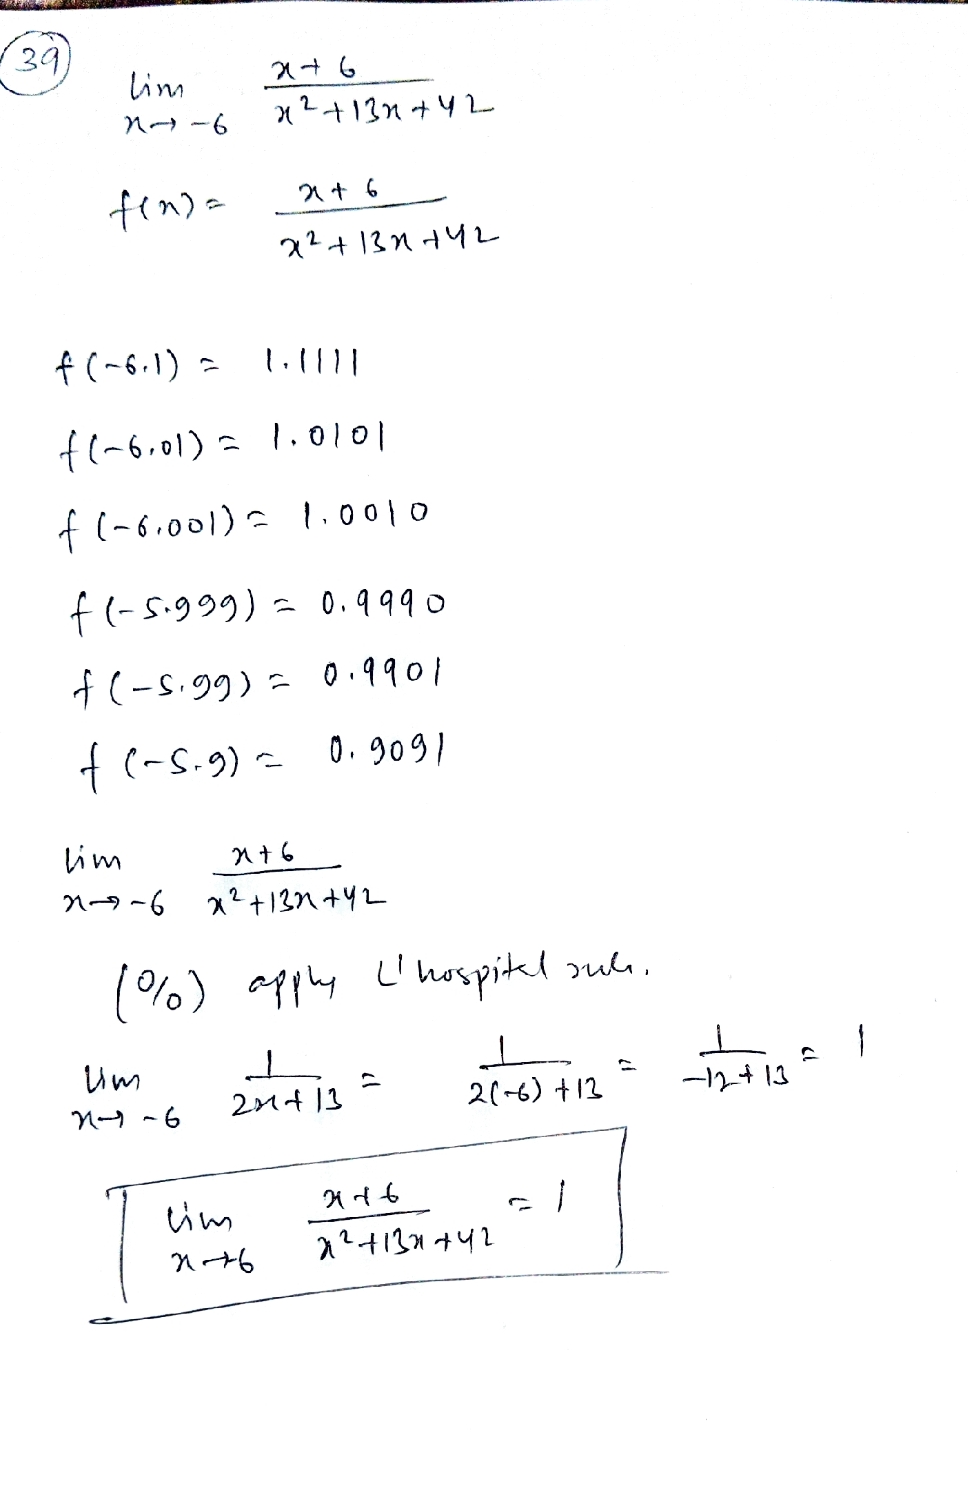 39
lim x→-6 x+6 / x²+13x+42
f(x) = x+6 / x²+13x+42
f(-6.1) = 1.1111
f(-6.01) = 1.0101
f(-6.001) = 1.0010
f(-5.999) = 0.9990
f(-5.99) = 0.9901
f(-5.9) = 0.9091
lim x→-6 x+6 / x²+13x+42
(0/0) apply L'hospital rule.
lim x→-6 1 / 2x+13 = 1 / 2(-6)+13 = 1 / -12+13 = 1
lim x→6 x+6 / x²+13x+42 = 1